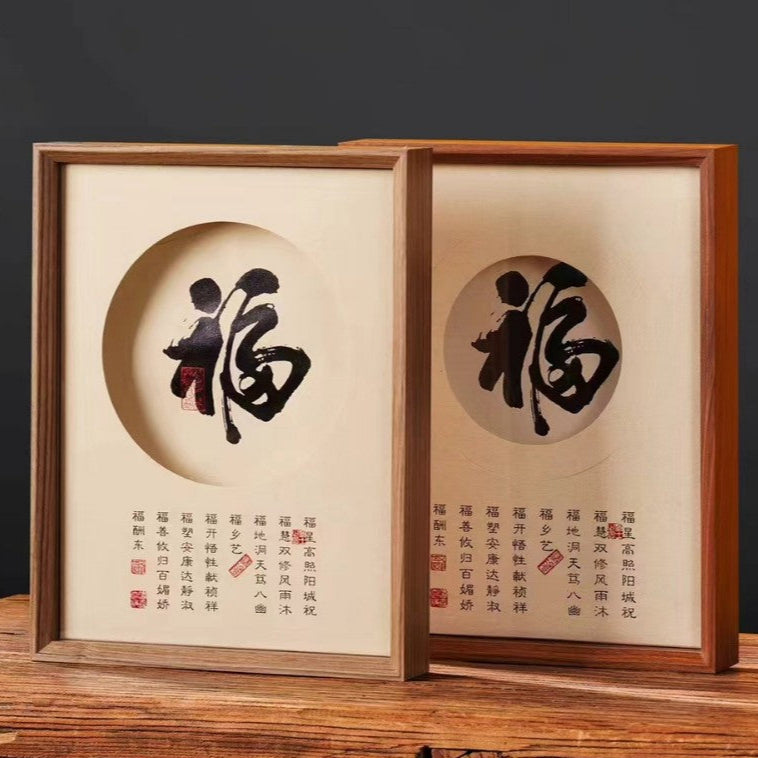 福
福星高照阳城祝
福慧双修风雨沐
福地洞天笃八幽
福乡艺
福开悟性献祯祥
福塑安康达静淑
福善攸归百媚娇
福酬东
福
福星高照阳城祝
福慧双修风雨沐
福地洞天笃八幽
福乡艺
福开悟性献祯祥
福塑安康达静淑
福善攸归百媚娇
福酬东